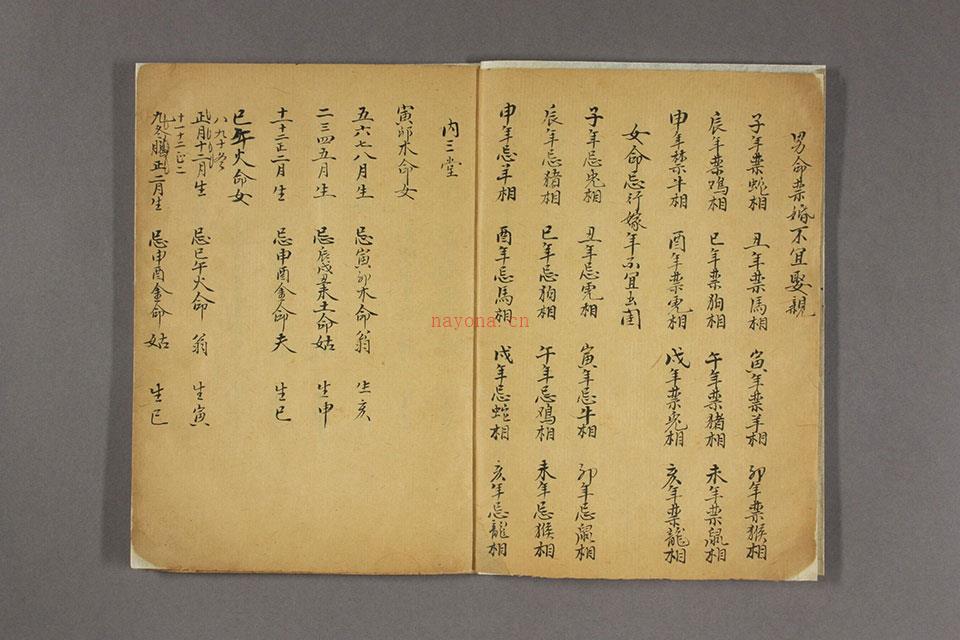 男命禁婚不宜娶親
子年禁蛇相 丑年禁馬相 寅年禁羊相 卯年禁猴相
辰年禁鳮相 巳年禁狗相 午年禁猪相 未年禁鼠相
申年禁牛相 酉年禁虎相 戌年禁兎相 亥年禁龍相
女命忌行嫁年不宜出閨
子年忌兎相 丑年忌虎相 寅年忌牛相 卯年忌鼠相
辰年忌猪相 巳年忌狗相 午年忌鳮相 未年忌猴相
申年忌羊相 酉年忌馬相 戌年忌蛇相 亥年忌龍相
内三堂
寅卯木命女
五六七八月生 忌寅卯木命翁 生亥
二三四五月生 忌辰戌丑未土命姑 生申
十一十二正二月生 忌申酉金命夫 生巳
巳午火命女
八九十
正月十二月生 忌巳午火命翁 生寅
十一十二正二
正二月生 忌申酉金命姑 生巳
nayona.cn